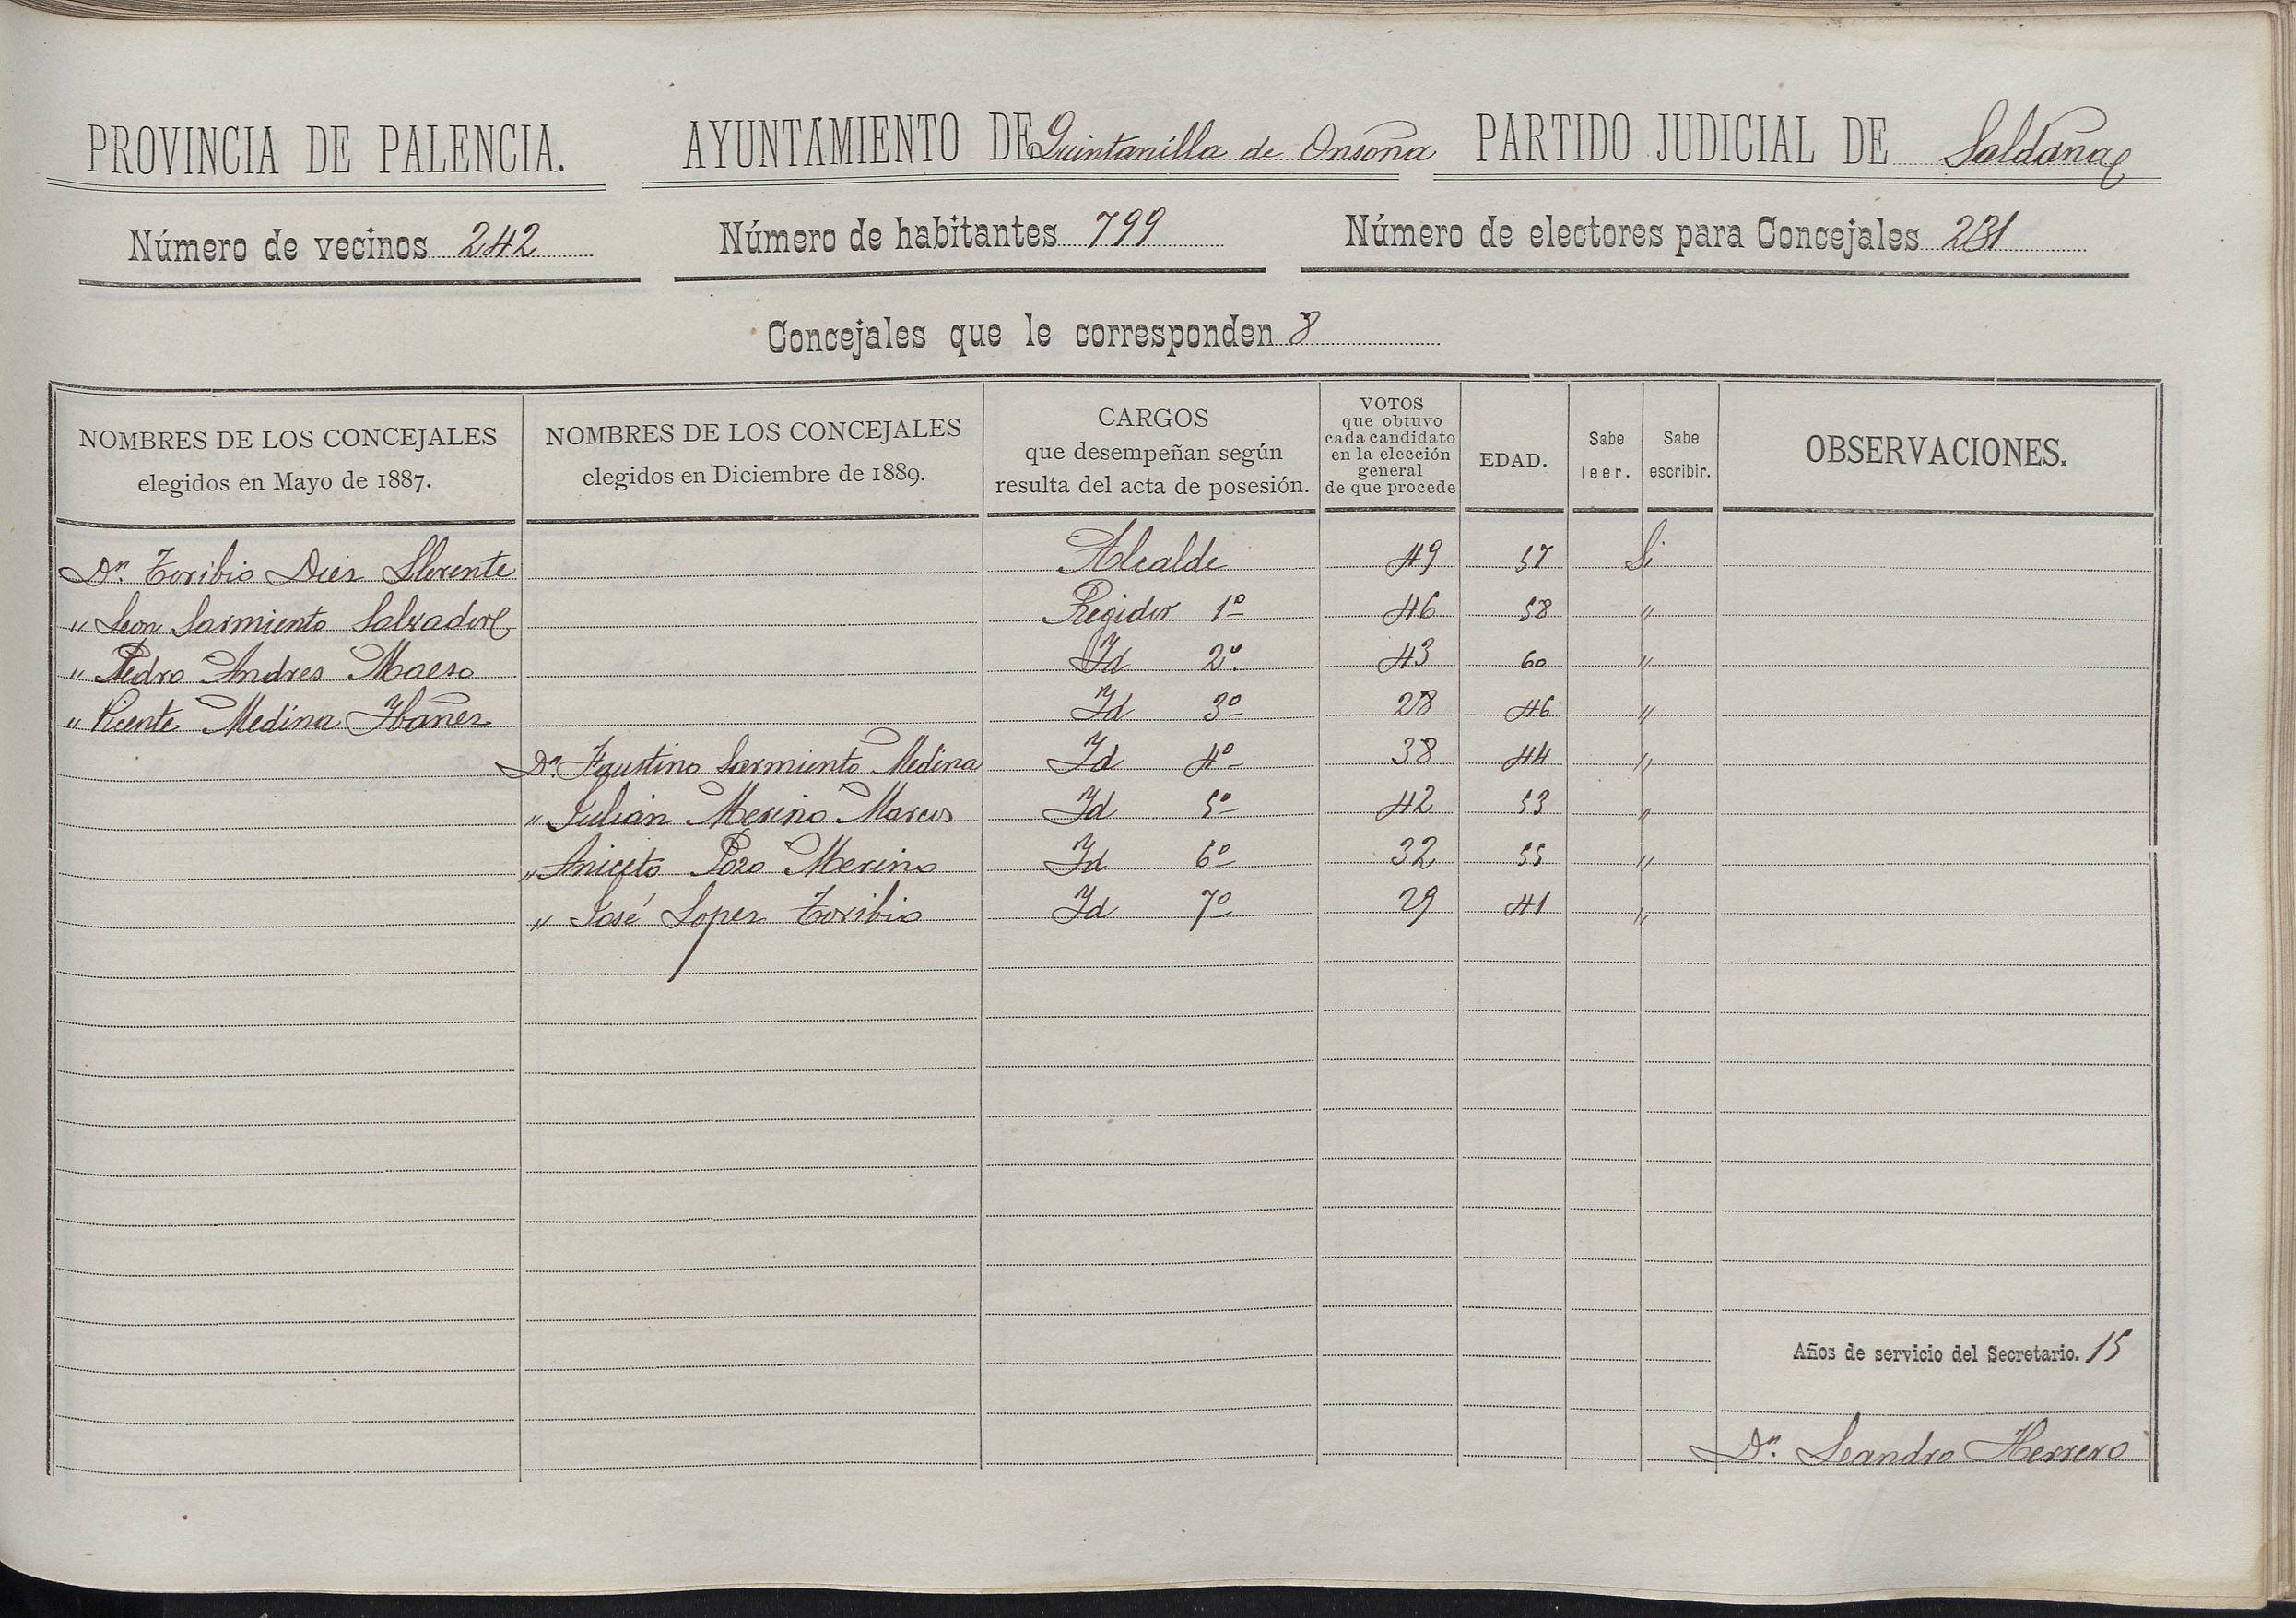 PROVINCIA DE PALENCIA. AYUNTAMIENTO DE Quintanilla de Onsoña PARTIDO JUDICIAL DE Saldaña
Número de vecinos 242 Número de habitantes 799 Número de electores para Concejales 231
Concejales que le corresponden 8
NOMBRES DE LOS CONCEJALES elegidos en Mayo de 1887. NOMBRES DE LOS CONCEJALES elegidos en Diciembre de 1889. CARGOS que desempeñan según resulta del acta de posesión. VOTOS que obtuvo cada candidato en la elección general de que procede EDAD. Sabe leer. Sabe escribir. OBSERVACIONES.
Dn. Toribio Diez Llorente Alcalde 49 57 Si
" Leon Sarmiento Salvador Regidor 1º 46 58 "
" Pedro Andres Maeso Id 2º 43 60 "
" Vicente Medina Ibañez Id 3º 28 46 "
Dn. Faustino Sarmiento Medina Id 4º 38 44 "
" Julián Merino Marcos Id 5º 42 53 "
" Aniceto Pozo Merino Id 6º 32 55 "
" José Lopez Toribio Id 7º 29 41 "
Años de servicio del Secretario. 15
Dn. Leandro Herrero